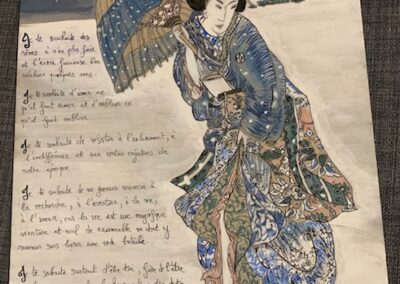 Je te souhaite des
rêves à n'en plus finir
et l'envie furieuse d'en
réaliser quelques uns.
Je te souhaite d'aimer ce
qu'il faut aimer et d'oublier ce
qu'il faut oublier.
Je te souhaite de résister à l'enlisement, à
l'indifférence et aux vertus négatives de
notre époque.
Je te souhaite de ne jamais renoncer à
la recherche, à l'aventure, à la vie,
à l'amour, car la vie est une magnifique
aventure et nul de raisonnable ne doit y
renoncer sans livrer une rude bataille
Je te souhaite surtout d'être toi, fière de l'être